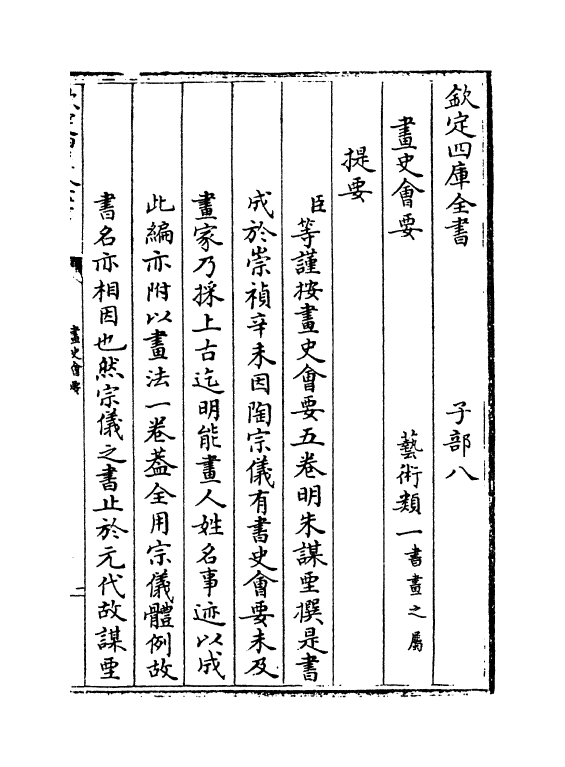 欽定四庫全書　子部八
畫史會要　藝術類一書畫之屬
提要
臣等謹按畫史會要五卷明朱謀垔撰是書
成於崇禎辛未因陶宗儀有書史會要未及
畫家乃採上古迄明能畫人姓名事迹以成
此編亦附以畫法一卷葢全用宗儀體例故
書名亦相因也然宗儀之書止於元代故謀垔
畫史會要